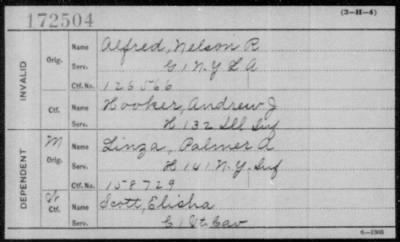 172504
(3-H-4)
INVALID
Orig.
Name Alfred, Nelson R
Serv. G 1 N.Y L A
Ctf. No. 126566
Ctf.
Name Hooker, Andrew J
Serv. H 132 Ill Inf
DEPENDENT
M
Orig.
Name Linza, Palmer A
Serv. H 141 N.Y. Inf
Ctf. No. 158729
Ctf.
Name Scott, Elisha
Serv. Vt Cav
6-1905